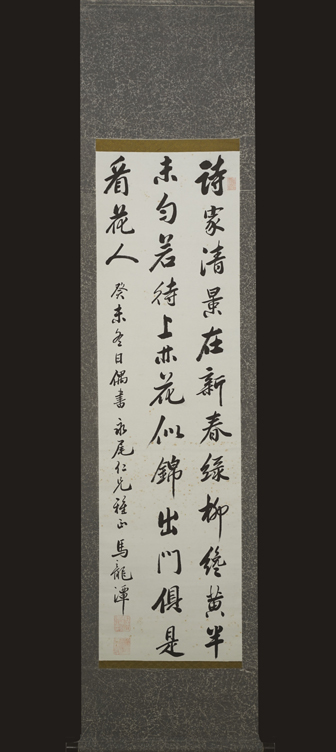 詩家清景在新春綠柳纔黃半
未勻若待上林花似錦出門俱是
看花人 癸未冬日偶書 永尾仁兄雅正 馬龍潭